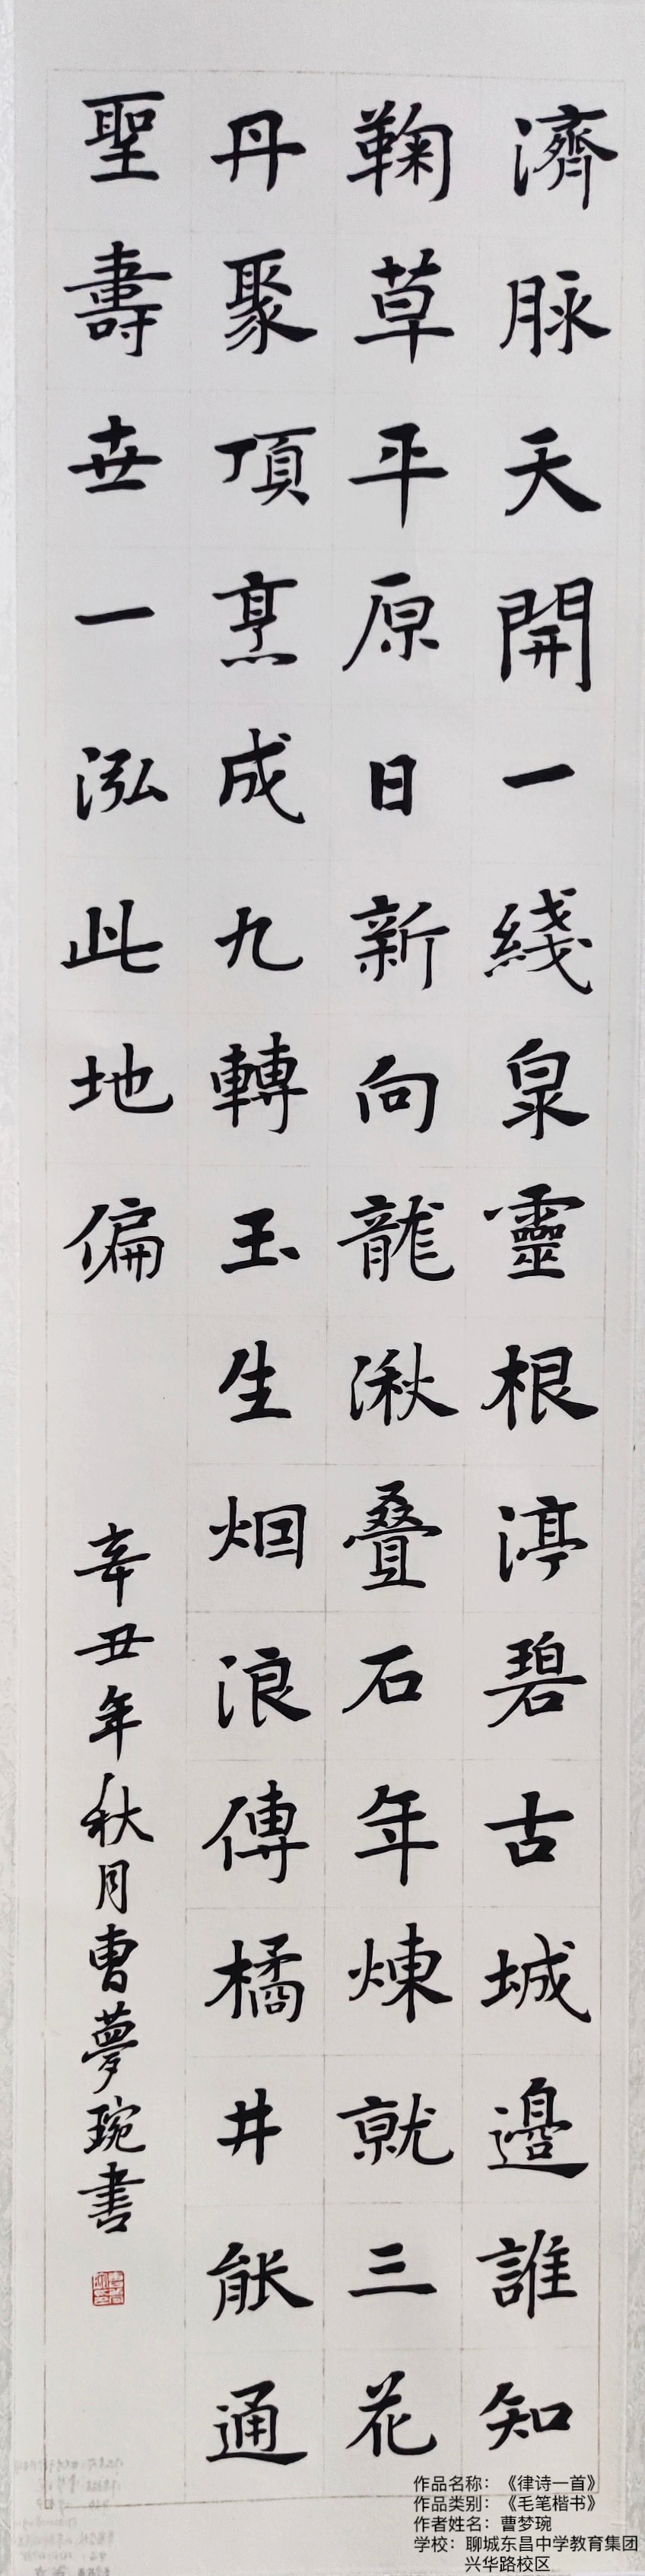 濟脉天開一綫泉靈根渟碧古城邊誰知
鞠草平原日新向龍湫叠石年煉就三花
丹聚頂烹成九轉玉生烟浪傳橘井能通
聖壽世一泓此地偏
辛丑年秋月曹夢琬書
作品名称：《律诗一首》
作品类别：《毛笔楷书》
作者姓名：曹梦琬
学校：聊城东昌中学教育集团
兴华路校区